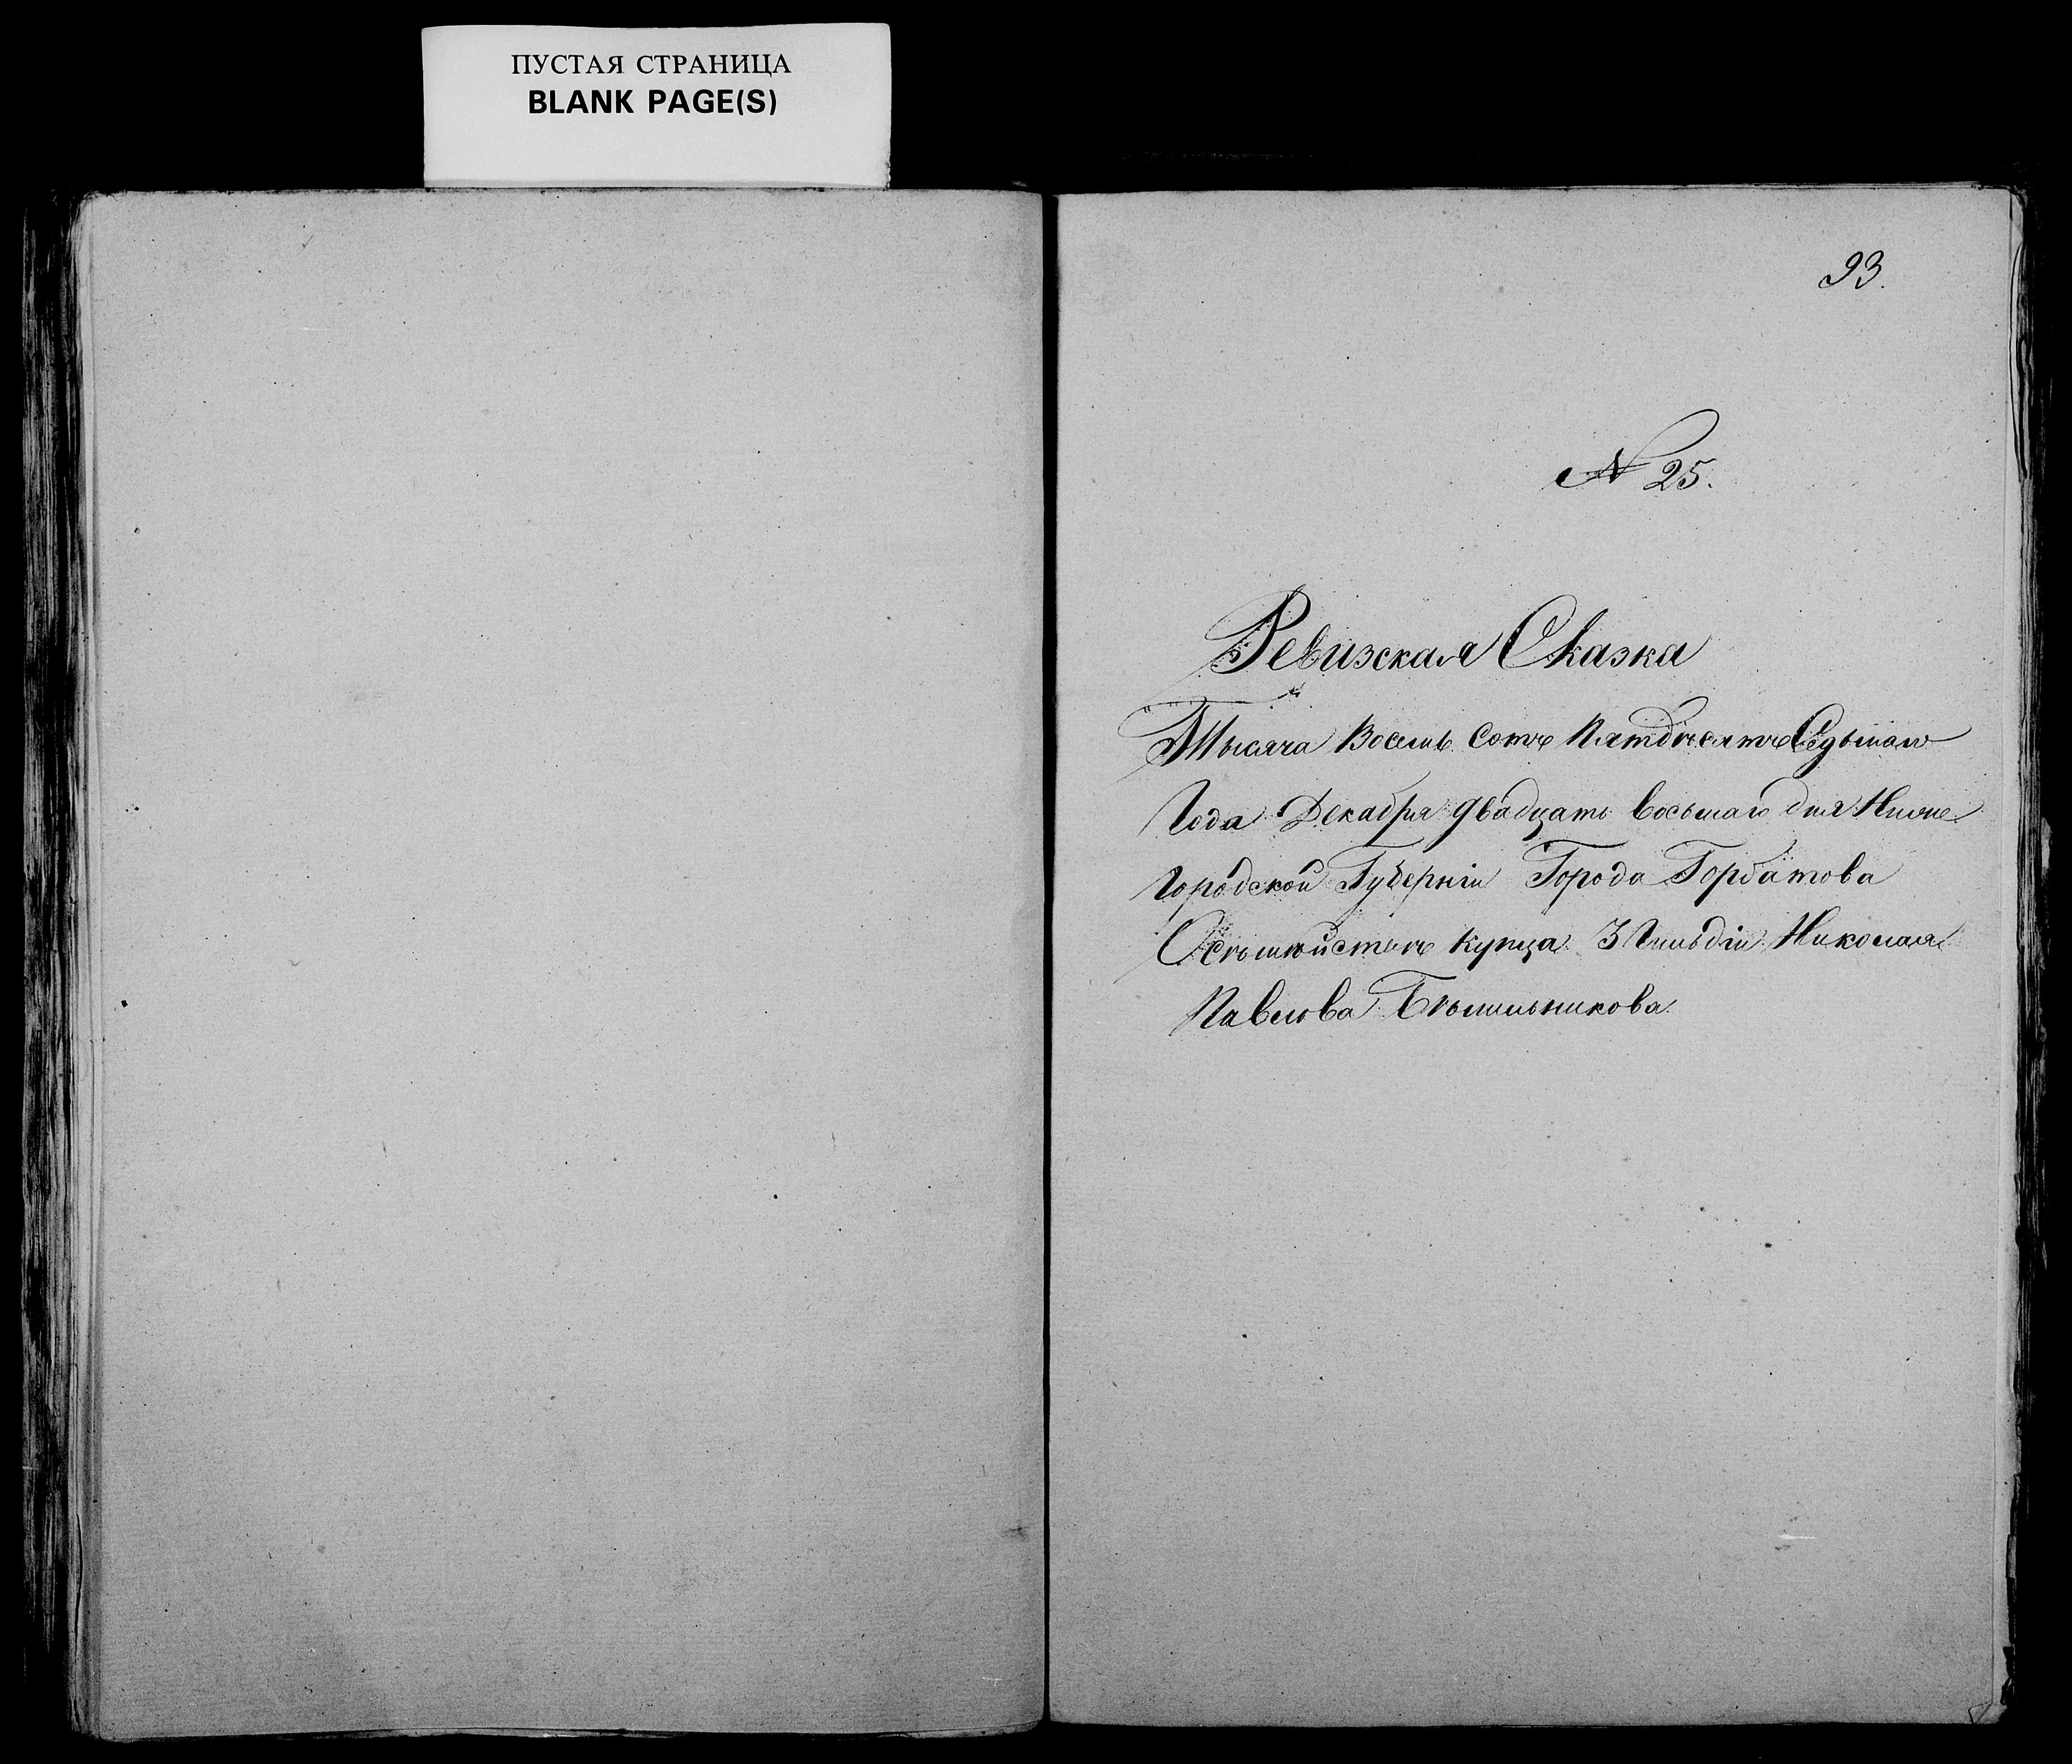 ПУСТАЯ СТРАНИЦА
BLANK PAGE(S)
93.
№ 25.
Ревизская Сказка
Тысяча Восемь сотъ Пятдесятъ Седьмаго
Года Декабря двадцать восьмаго дня Ниже
городской Губерніи Города Горбатова
О семѣйствѣ купца 3 Гильдіи Николая
Павлова Бѣлильникова.